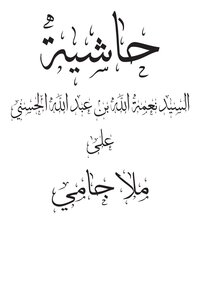 حاشية
السيد نعمة الله بن عبد الله الحسيني
على
ملا جامي